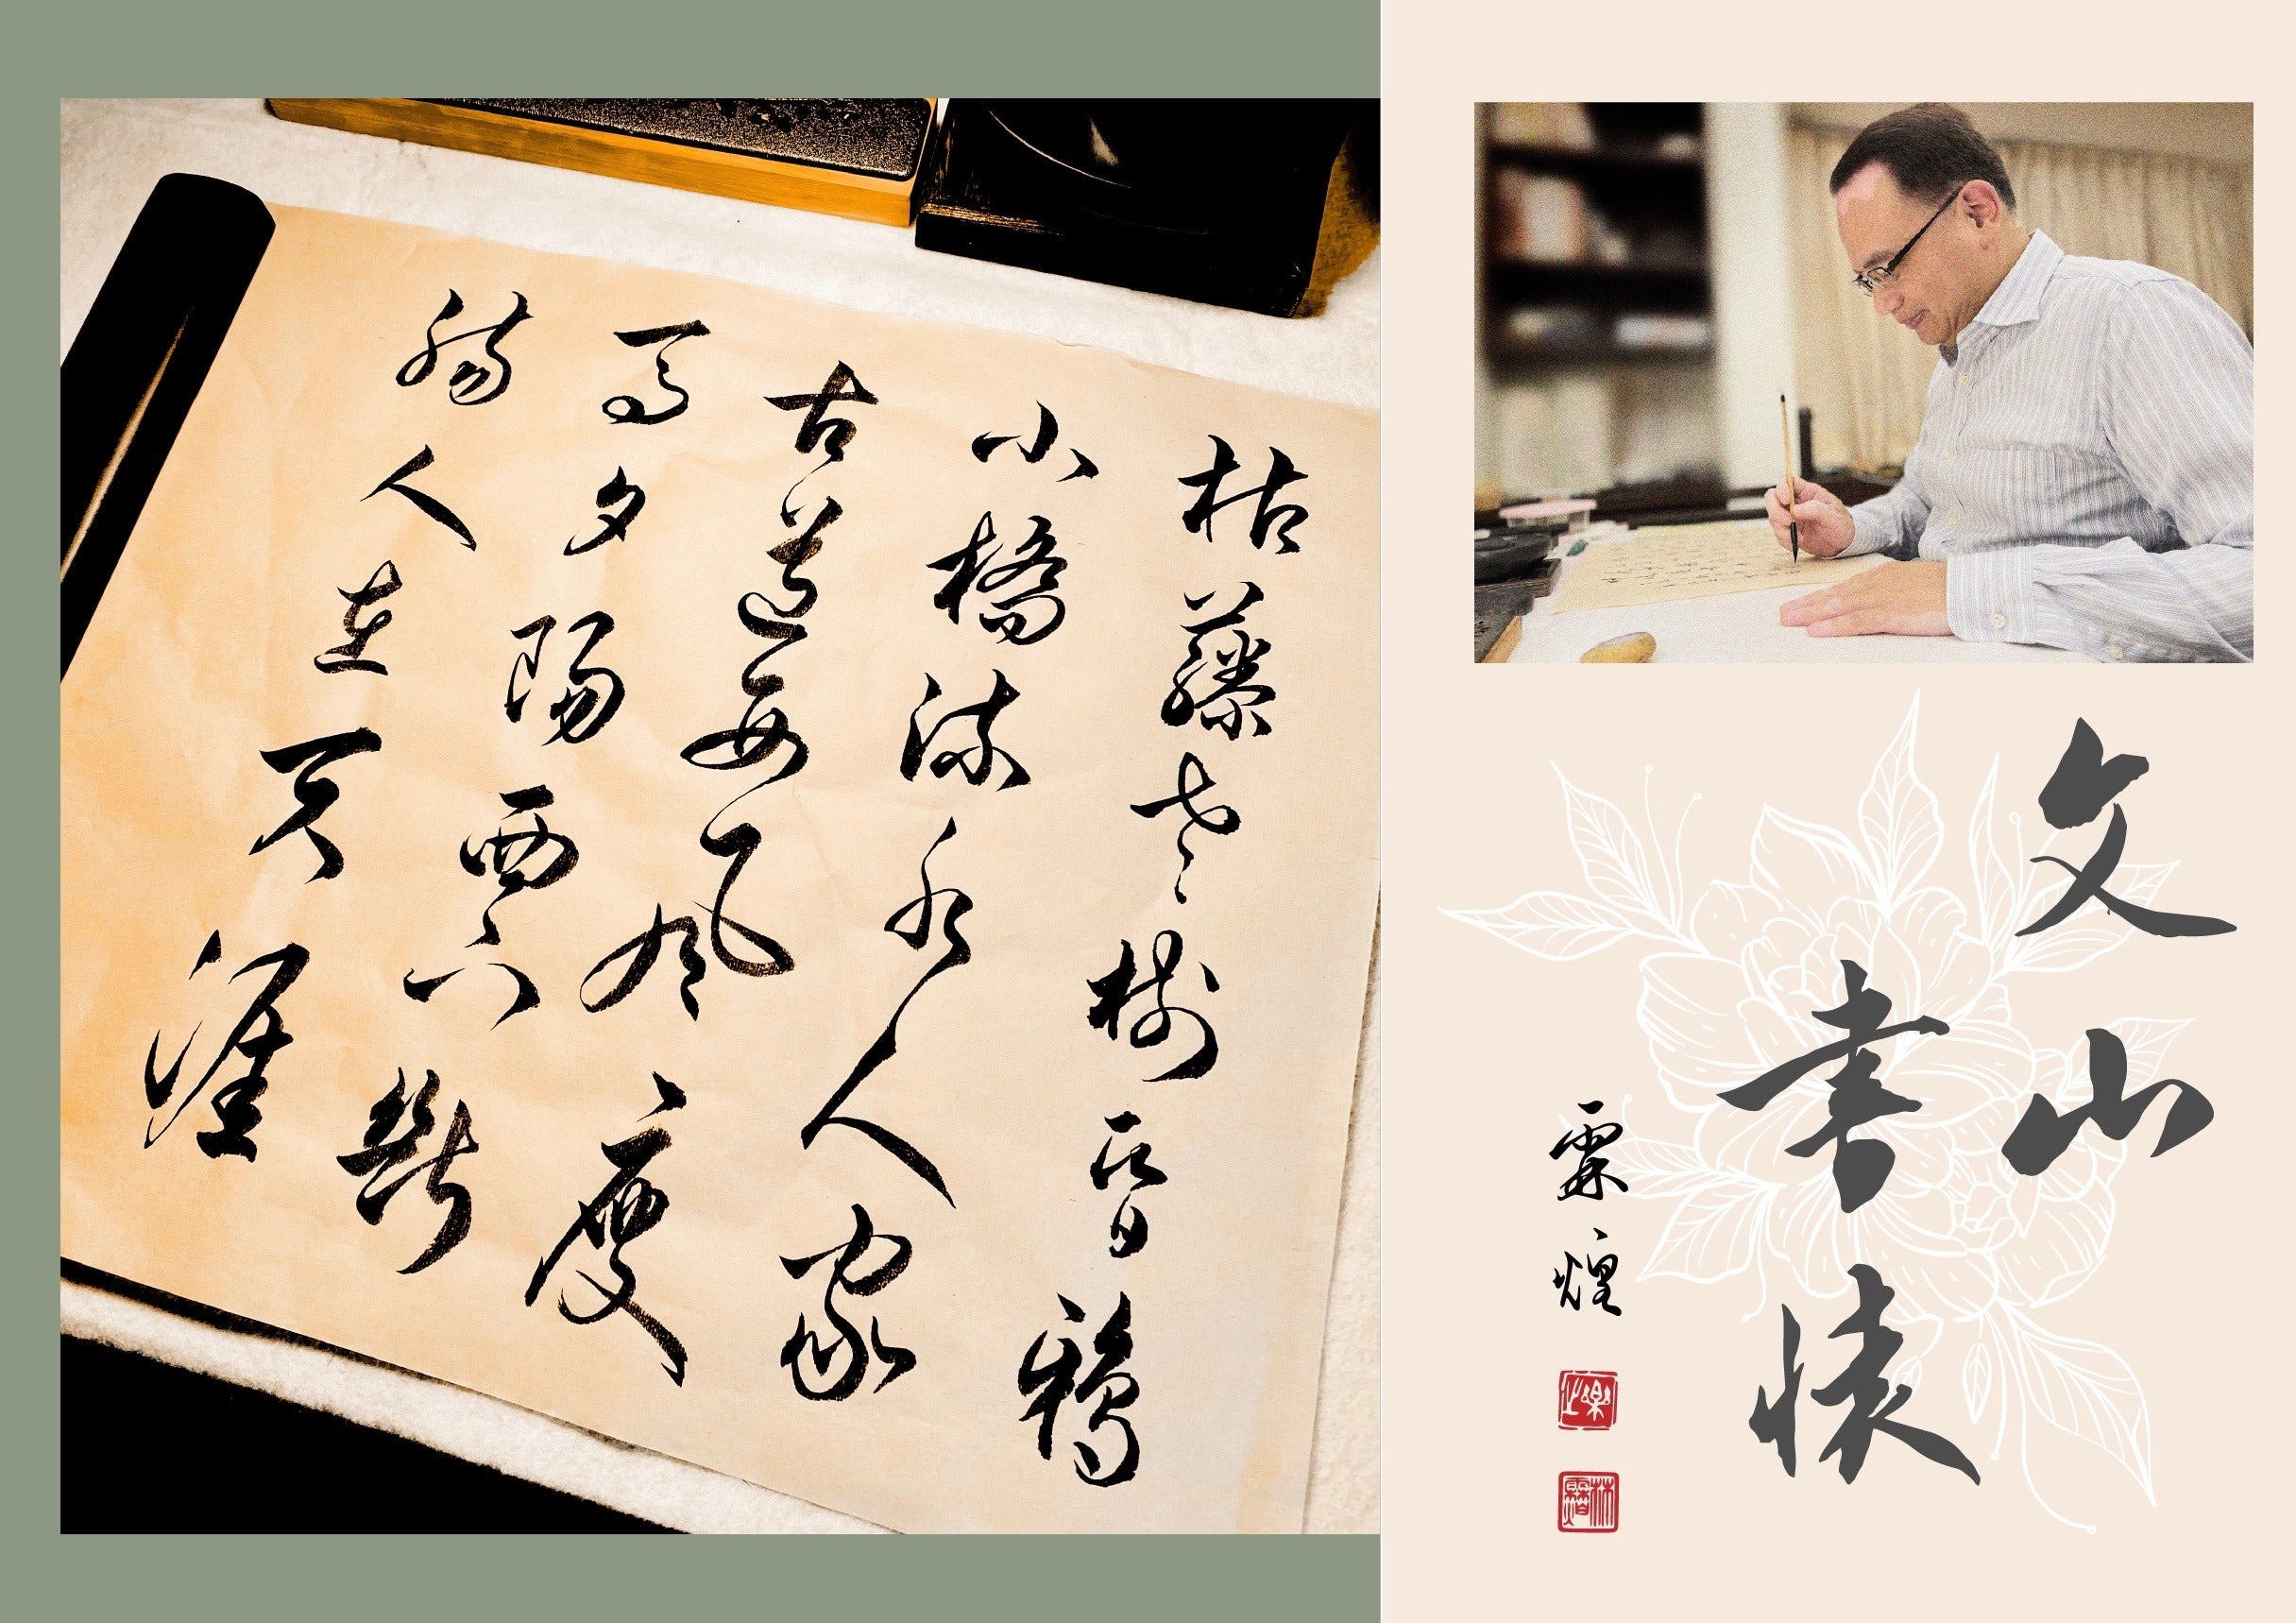 枯藤老樹昏鴉
小橋流水人家
古道西風瘦
馬夕陽西下斷
腸人在天涯
文山
書懷
霖煌
林霖煌